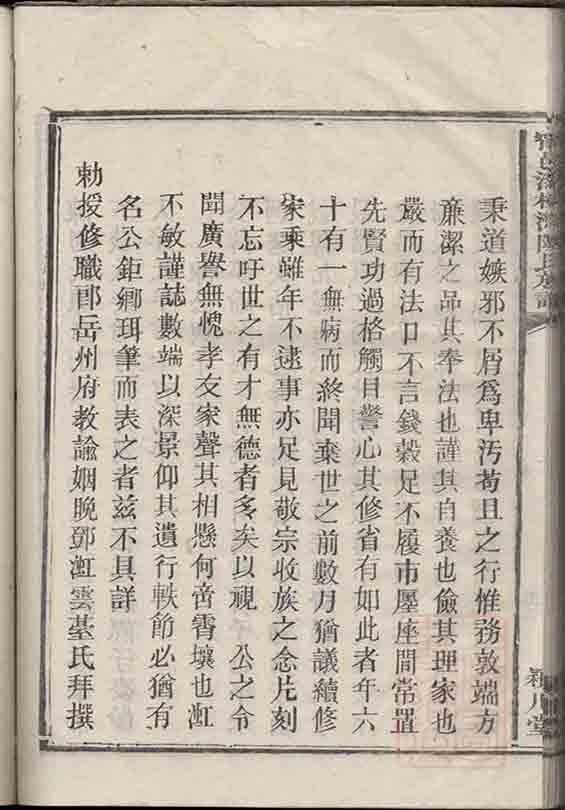 秉道嫉邪不屑爲卑汚苟且之行惟務敦端方
亷潔之品其奉法也謹其自養也儉其理家也
嚴而有法口不言錢穀足不履市廛座間常置
先賢功過格觸目警心其修省有如此者年六
十有一無病而終聞棄世之前數月猶議續修
家乘雖年不逮事亦足見敬宗收族之念片刻
不忘吁世之有才無德者多矣以視 公之令
聞廣譽無愧孝友家聲其相懸何啻霄壤也
不敏謹誌數端以深景仰其遺行軼節必猶有
名公鉅卿珥筆而表之者玆不具詳
勅授修職郎岳州府教諭姻晚鄧雲臺氏拜撰
陳氏族
潁川堂